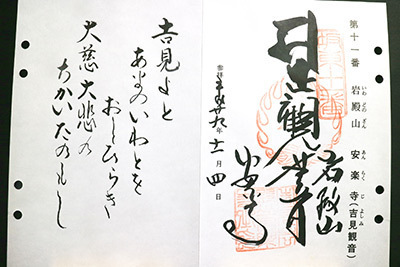 第十一番 岩殿山 安楽寺(吉見観音)
いわとのざん あんらくじ よしみ
奉拝 平成廿九年 十一月 四日
聖観世音
岩殿山
安楽寺
吉見よと
あまのいわとを
おしひらき
大慈大悲の
ちかいたのもし